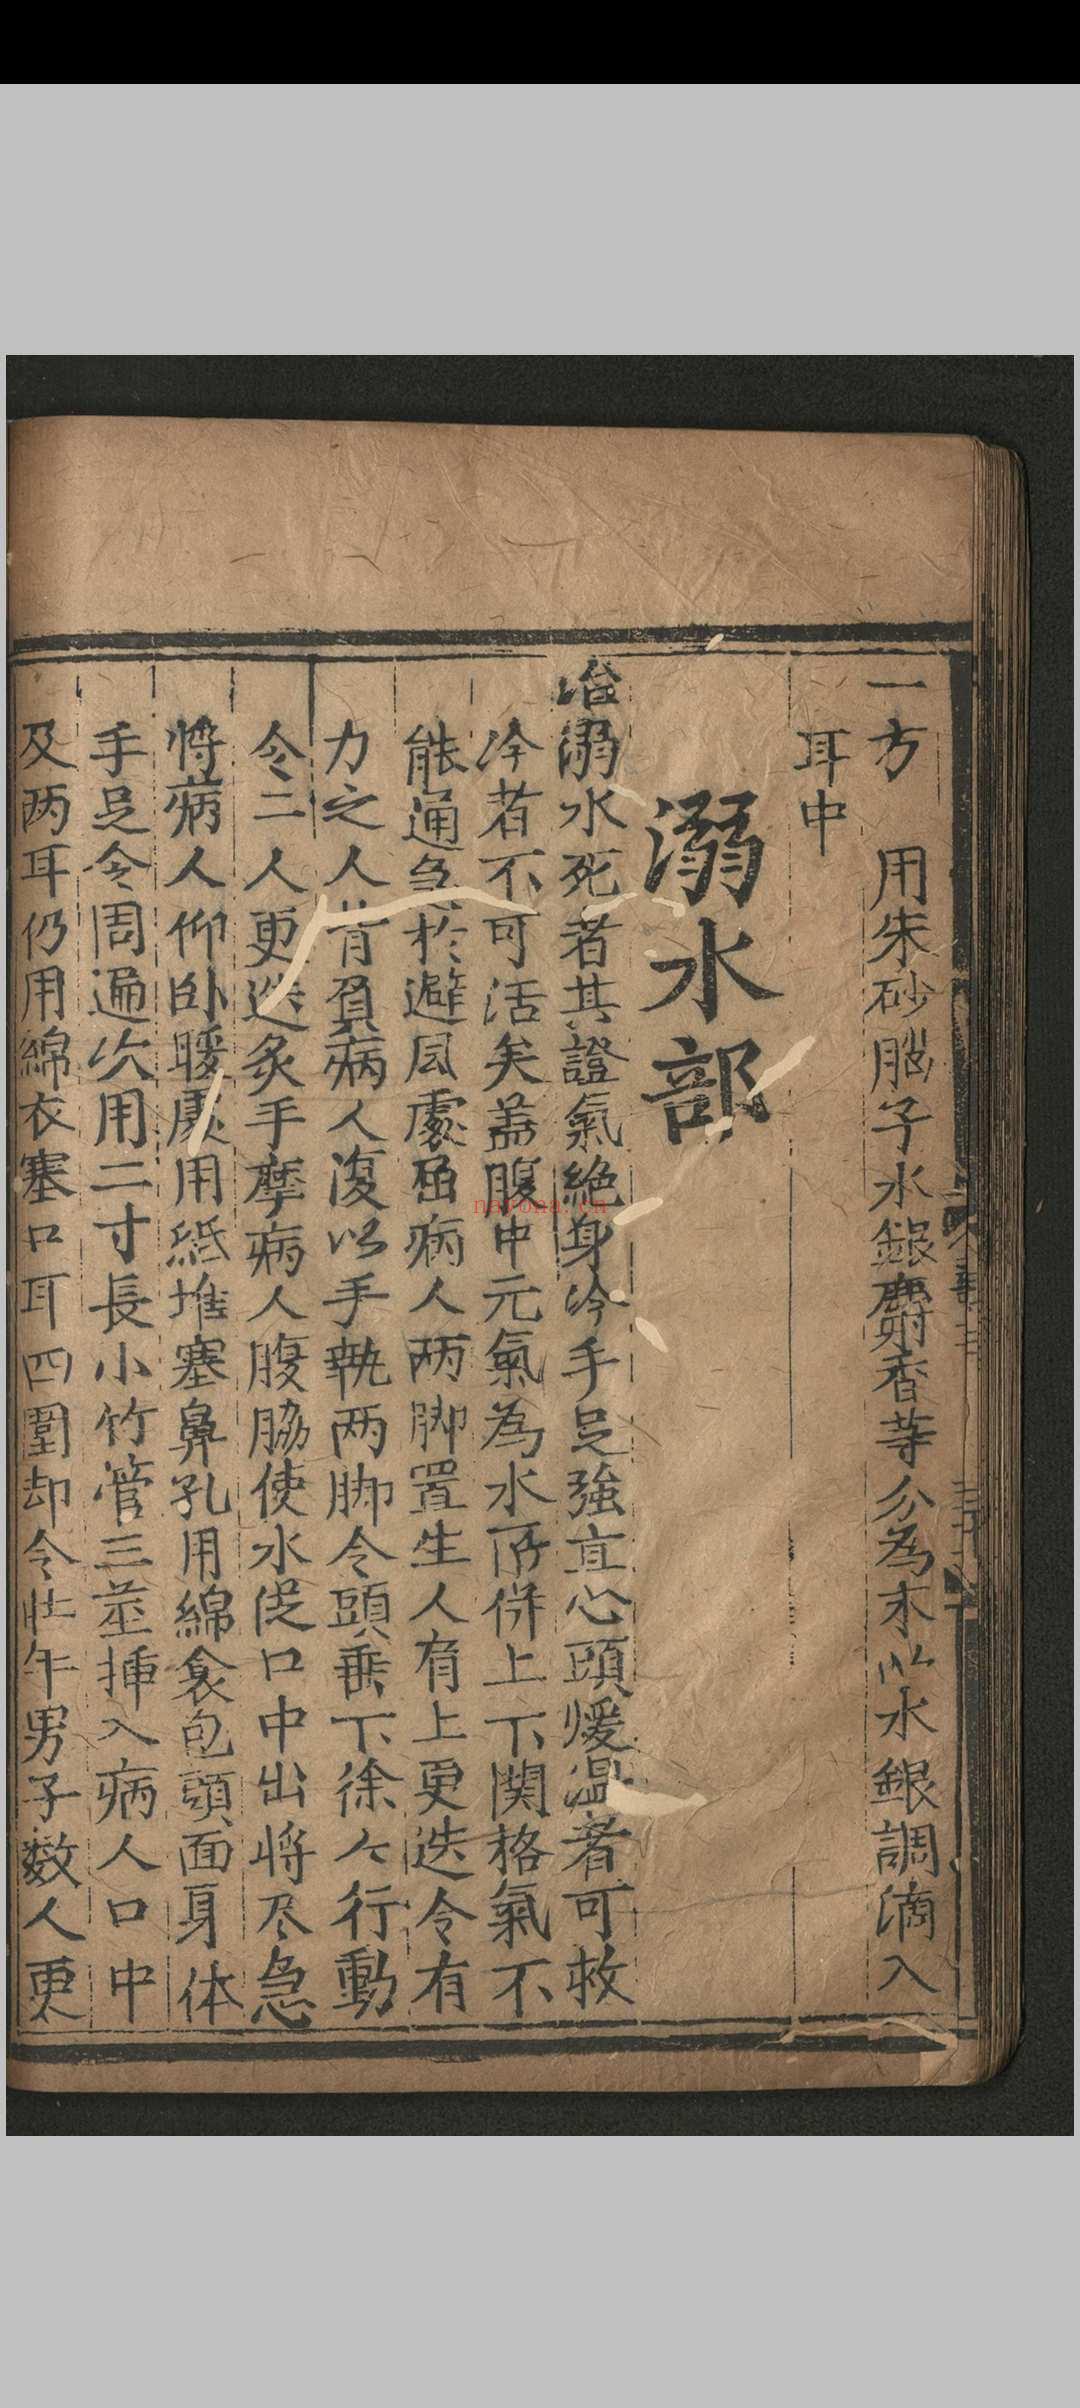 一方 用朱砂腦子水銀麝香等分為末以水銀調滴入
耳中
溺水部
治溺水死者其證氣絶身冷手足強直心頭煖温者可救
冷者不可活矣盖腹中元氣為水所併上下関格氣不
能通急於避風處屈病人两脚置生人肩上更迭令有
力之人背負病人復以手執两脚令頭垂下徐々行動
令二人更迭炙手摩病人腹脇使水從口中出将尽急
将病人仰卧暖處用紙堆塞鼻孔用綿衮包頭面身体
手足令周遍次用二寸長小竹管三莖揷入病人口中
及两耳仍用綿衣塞口耳四圍却令壮年男子数人更
nayona.cn